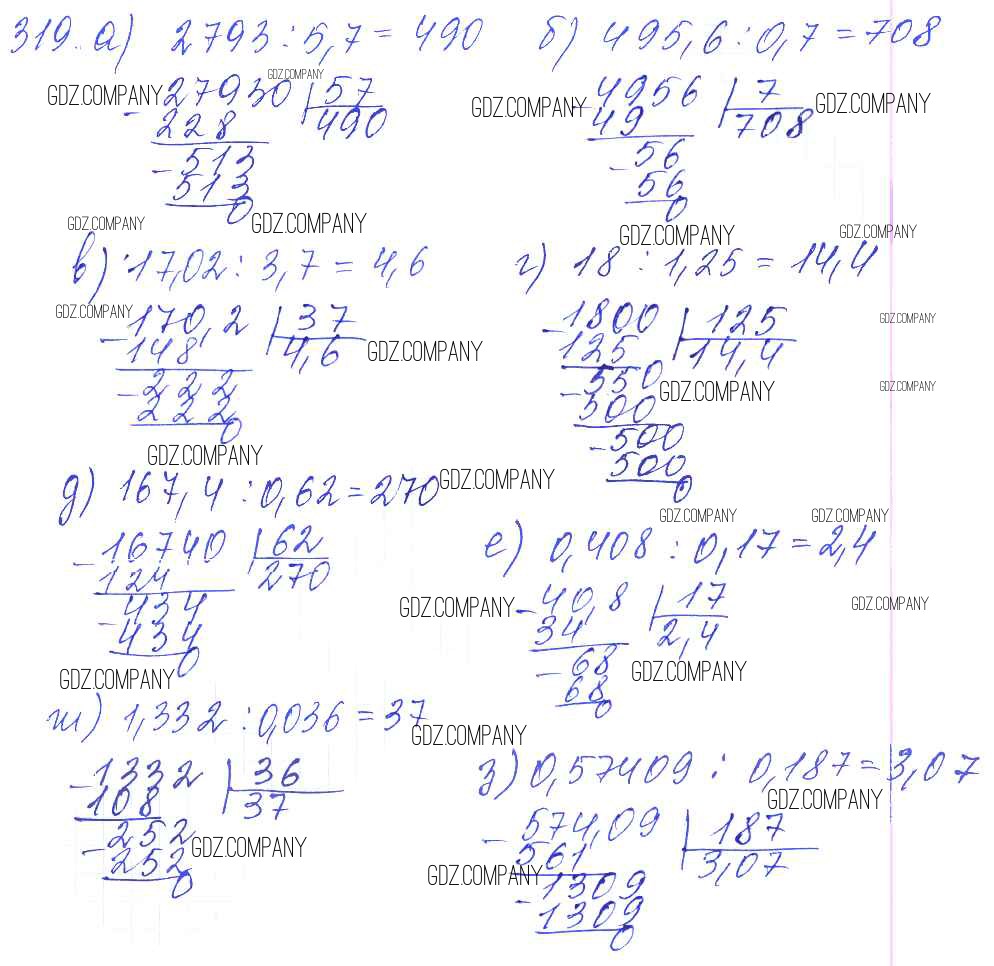 319. а) 2793 : 5,7 = 490
GDZ.COMPANY
GDZ.COMPANY
- 27930 | 57
228 490
- 513
513
0
GDZ.COMPANY
б) 495,6 : 0,7 = 708
GDZ.COMPANY
- 4956 | 7
49 708
GDZ.COMPANY
- 56
56
0
GDZ.COMPANY
GDZ.COMPANY
GDZ.COMPANY
в) 17,02 : 3,7 = 4,6
GDZ.COMPANY
- 170,2 | 37
148 4,6
GDZ.COMPANY
- 222
222
0
GDZ.COMPANY
г) 18 : 1,25 = 14,4
- 1800 | 125
125 14,4
GDZ.COMPANY
- 550
500
GDZ.COMPANY
GDZ.COMPANY
- 500
500
0
д) 167,4 : 0,62 = 270
GDZ.COMPANY
- 16740 | 62
124 270
- 434
434
0
GDZ.COMPANY
GDZ.COMPANY
GDZ.COMPANY
е) 0,408 : 0,17 = 2,4
GDZ.COMPANY
- 40,8 | 17
34 2,4
GDZ.COMPANY
- 68
68
0
GDZ.COMPANY
ж) 1,332 : 0,036 = 37
GDZ.COMPANY
- 1332 | 36
108 37
- 252
252
0
GDZ.COMPANY
з) 0,57409 : 0,187 = 3,07
GDZ.COMPANY
- 574,09 | 187
561 3,07
GDZ.COMPANY
- 1309
1309
0